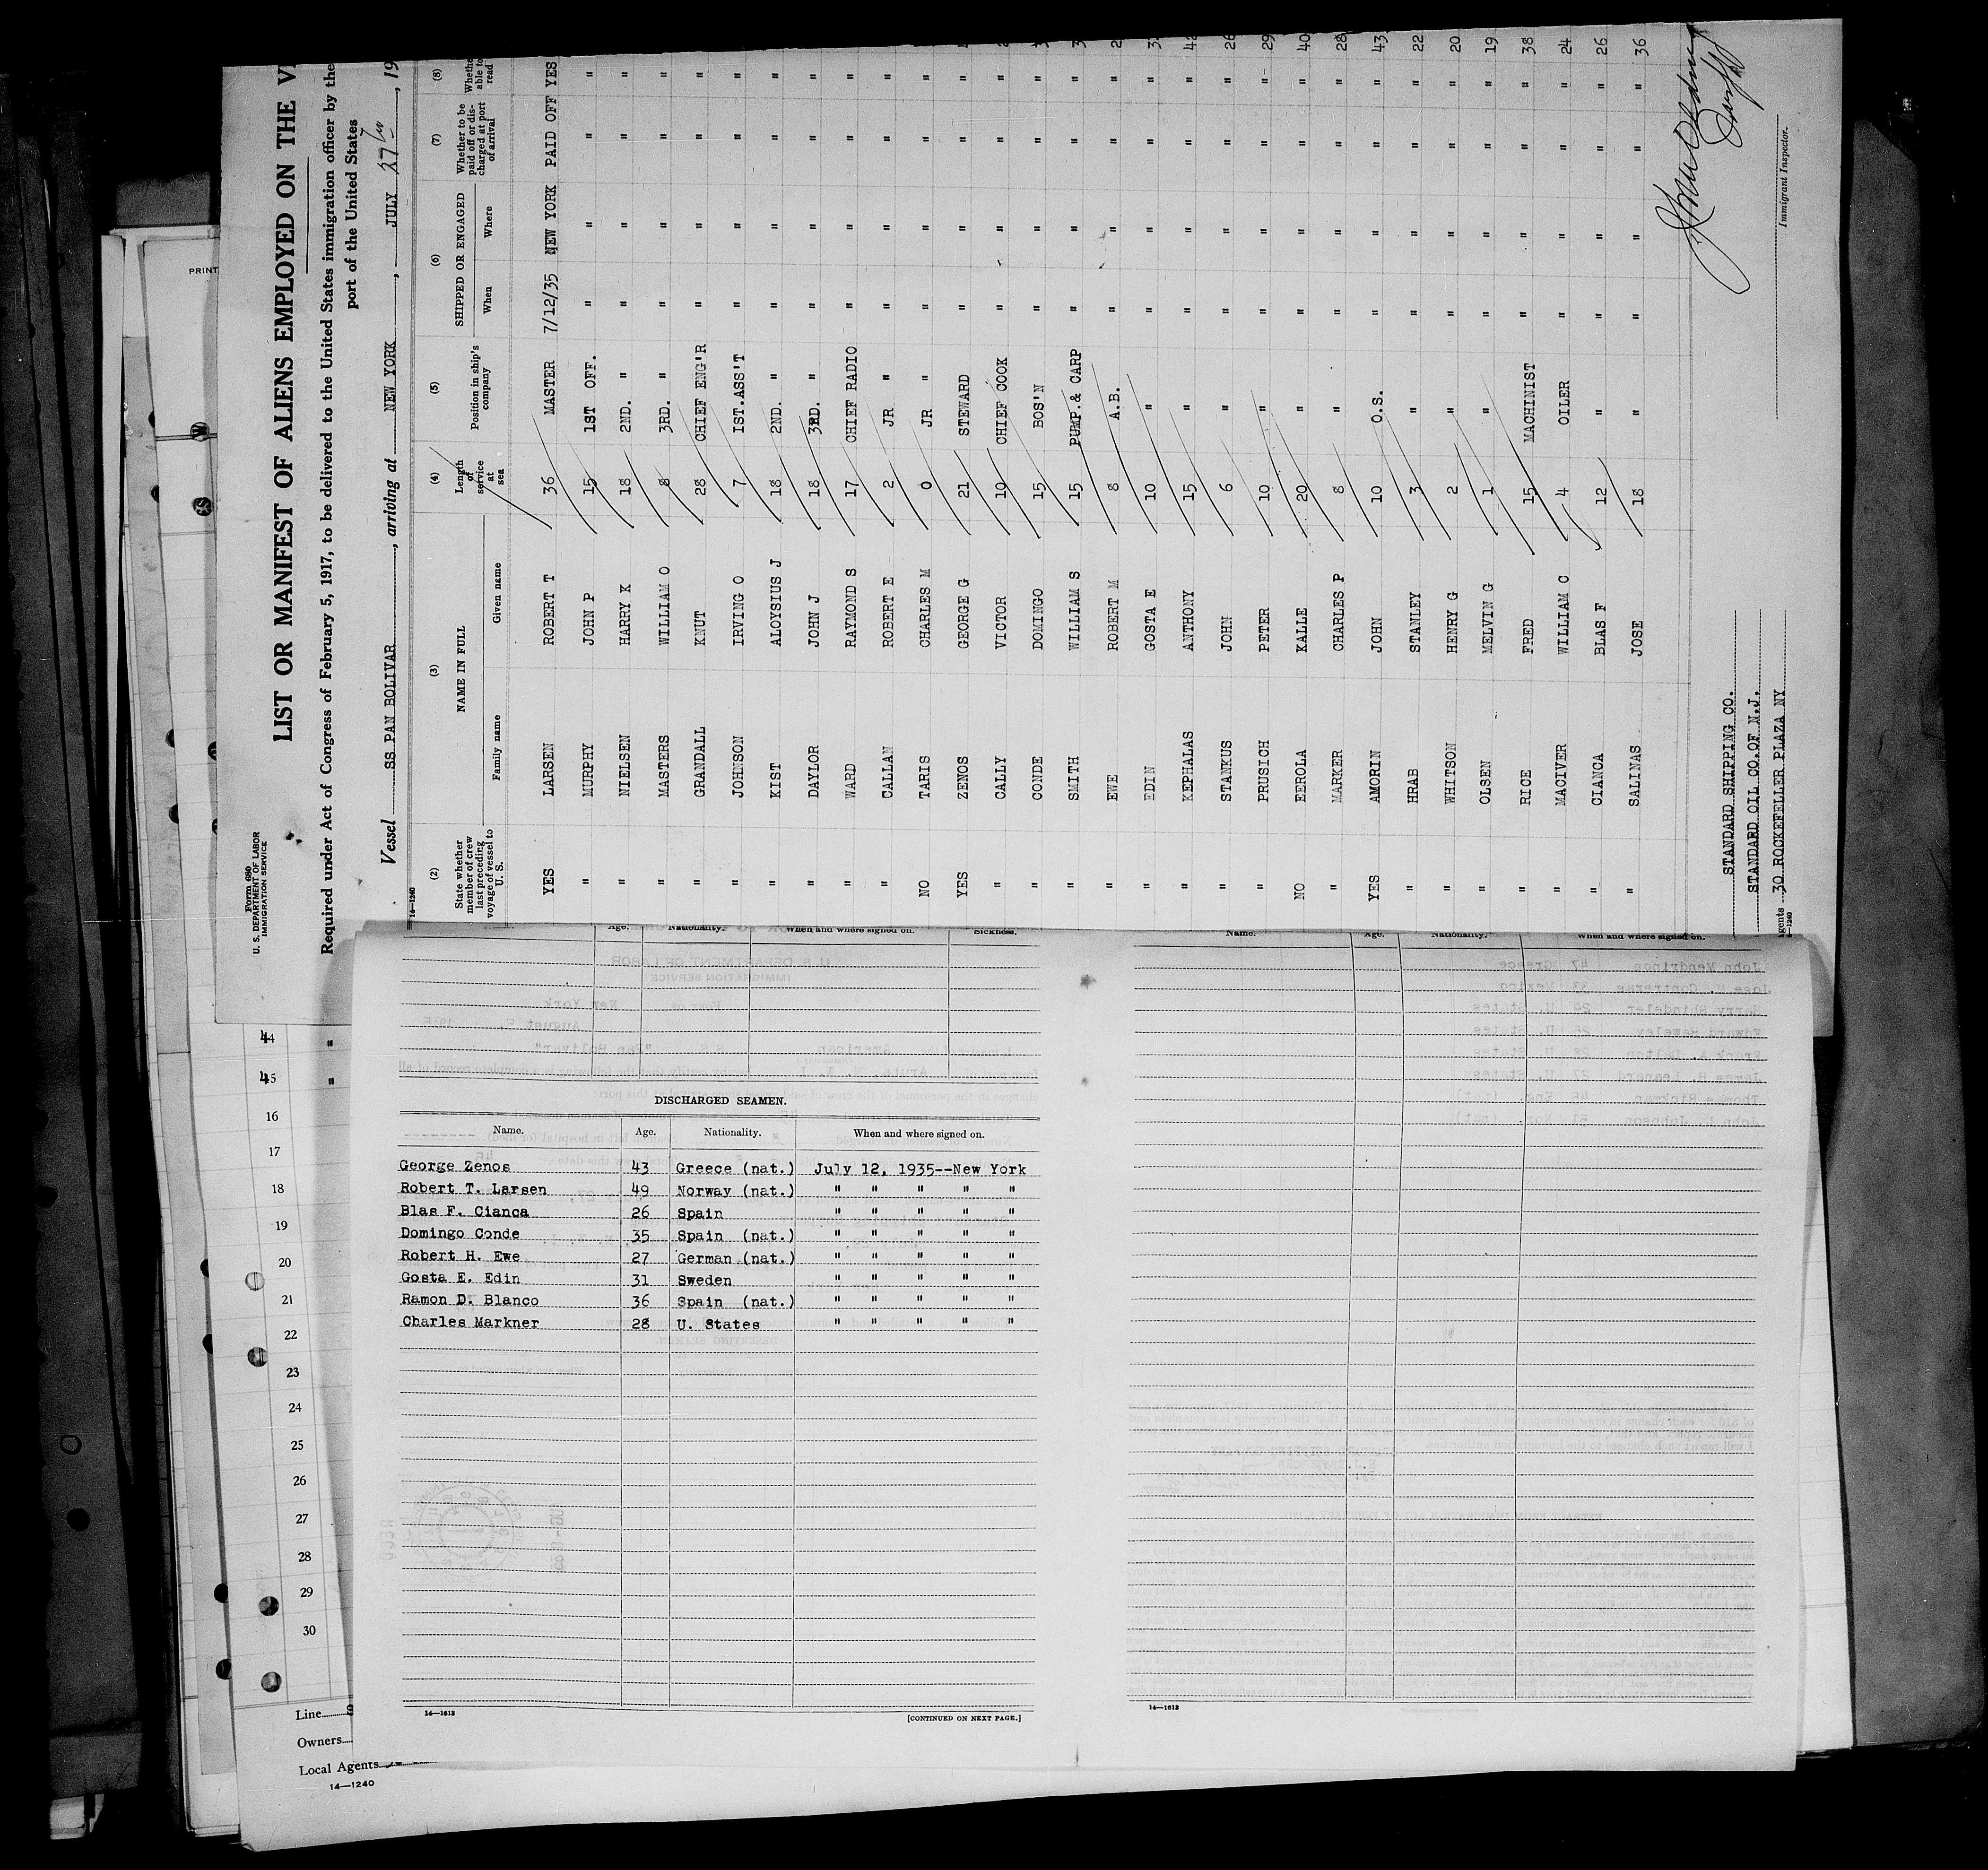 Form 680
U. S. DEPARTMENT OF LABOR
IMMIGRATION SERVICE
LIST OR MANIFEST OF ALIENS EMPLOYED ON THE
Required under Act of Congress of February 5, 1917, to be delivered to the United States immigration officer by the
port of the United States
Vessel SS PAN BOLIVAR, arriving at NEW YORK, JULY 27, 19
14—1240
(2) (3) (4) (5) (6) (7) (8)
State whether member of crew last preceding voyage of vessel to U. S.
NAME IN FULL
Family name Given name
Length of service at sea
Position in ship's company
SHIPPED OR ENGAGED
When Where
Whether to be paid off or discharged at port of arrival
able to read
YES LARSEN ROBERT T 36 MASTER 7/12/35 NEW YORK PAID OFF YES
" MURPHY JOHN P 15 1ST OFF. " " " "
" NIELSEN HARRY K 18 2ND. " " " " "
" MASTERS WILLIAM O 8 3RD. " " " " "
" GRANDALL KNUT 28 CHIEF ENG'R " " " "
" JOHNSON IRVING O 7 1ST.ASS'T " " " "
" KIST ALOYSIUS J 18 2ND. " " " " "
" DAYLOR JOHN J 18 3RD. " " " " "
" WARD RAYMOND S 17 CHIEF RADIO " " " "
" CALLAN ROBERT E 2 JR " " " " "
NO TARIS CHARLES M 0 JR " " " " "
YES ZENOS GEORGE G 21 STEWARD " " " "
" CALLY VICTOR 10 CHIEF COOK " " " "
" CONDE DOMINGO 15 BOS'N " " " "
" SMITH WILLIAM S 15 PUMP.& CARP " " " "
" EWE ROBERT M 8 A.B. " " " " 2
" EDIN GOSTA E 10 " " " " " 3
" KEPHALAS ANTHONY 15 " " " " " 42
" STANKUS JOHN 6 " " " " " 26
" PRUSICH PETER 10 " " " " " 29
NO EEROLA KALLE 20 " " " " " 40
" MARKER CHARLES P 8 " " " " " 28
YES AMORIN JOHN 10 O.S. " " " " 43
" HRAB STANLEY 3 " " " " " 22
" WHITSON HENRY G 2 " " " " " 20
" OLSEN MELVIN G 1 " " " " " 19
" RICE FRED 15 MACHINIST " " " " 38
" MACIVER WILLIAM C 4 OILER " " " " 24
" CIANCA BLAS F 12 " " " " " 26
" SALINAS JOSE 18 " " " " " 36
STANDARD SHIPPING CO.
STANDARD OIL CO.OF N.J.
Agents 30 ROCKEFELLER PLAZA NY
Immigrant Inspector.
PRINT
Age. Nationality. When and where signed on. Sickness.
Name. Age. Nationality. When and where signed on.
DISCHARGED SEAMEN.
Name. Age. Nationality. When and where signed on.
George Zenos 43 Greece (nat.) July 12, 1935--New York
Robert T. Larsen 49 Norway (nat.) " " " " "
Blas F. Cianca 26 Spain " " " " "
Domingo Conde 35 Spain (nat.) " " " " "
Robert H. Ewe 27 German (nat.) " " " " "
Gosta E. Edin 31 Sweden " " " " "
Ramon D. Blanco 36 Spain (nat.) " " " " "
Charles Markner 28 U. States " " " " "
14—1613
[CONTINUED ON NEXT PAGE.]
14—1613
16
17
18
19
20
21
22
23
24
25
26
27
28
29
30
Line
Owners
Local Agents
14—1240